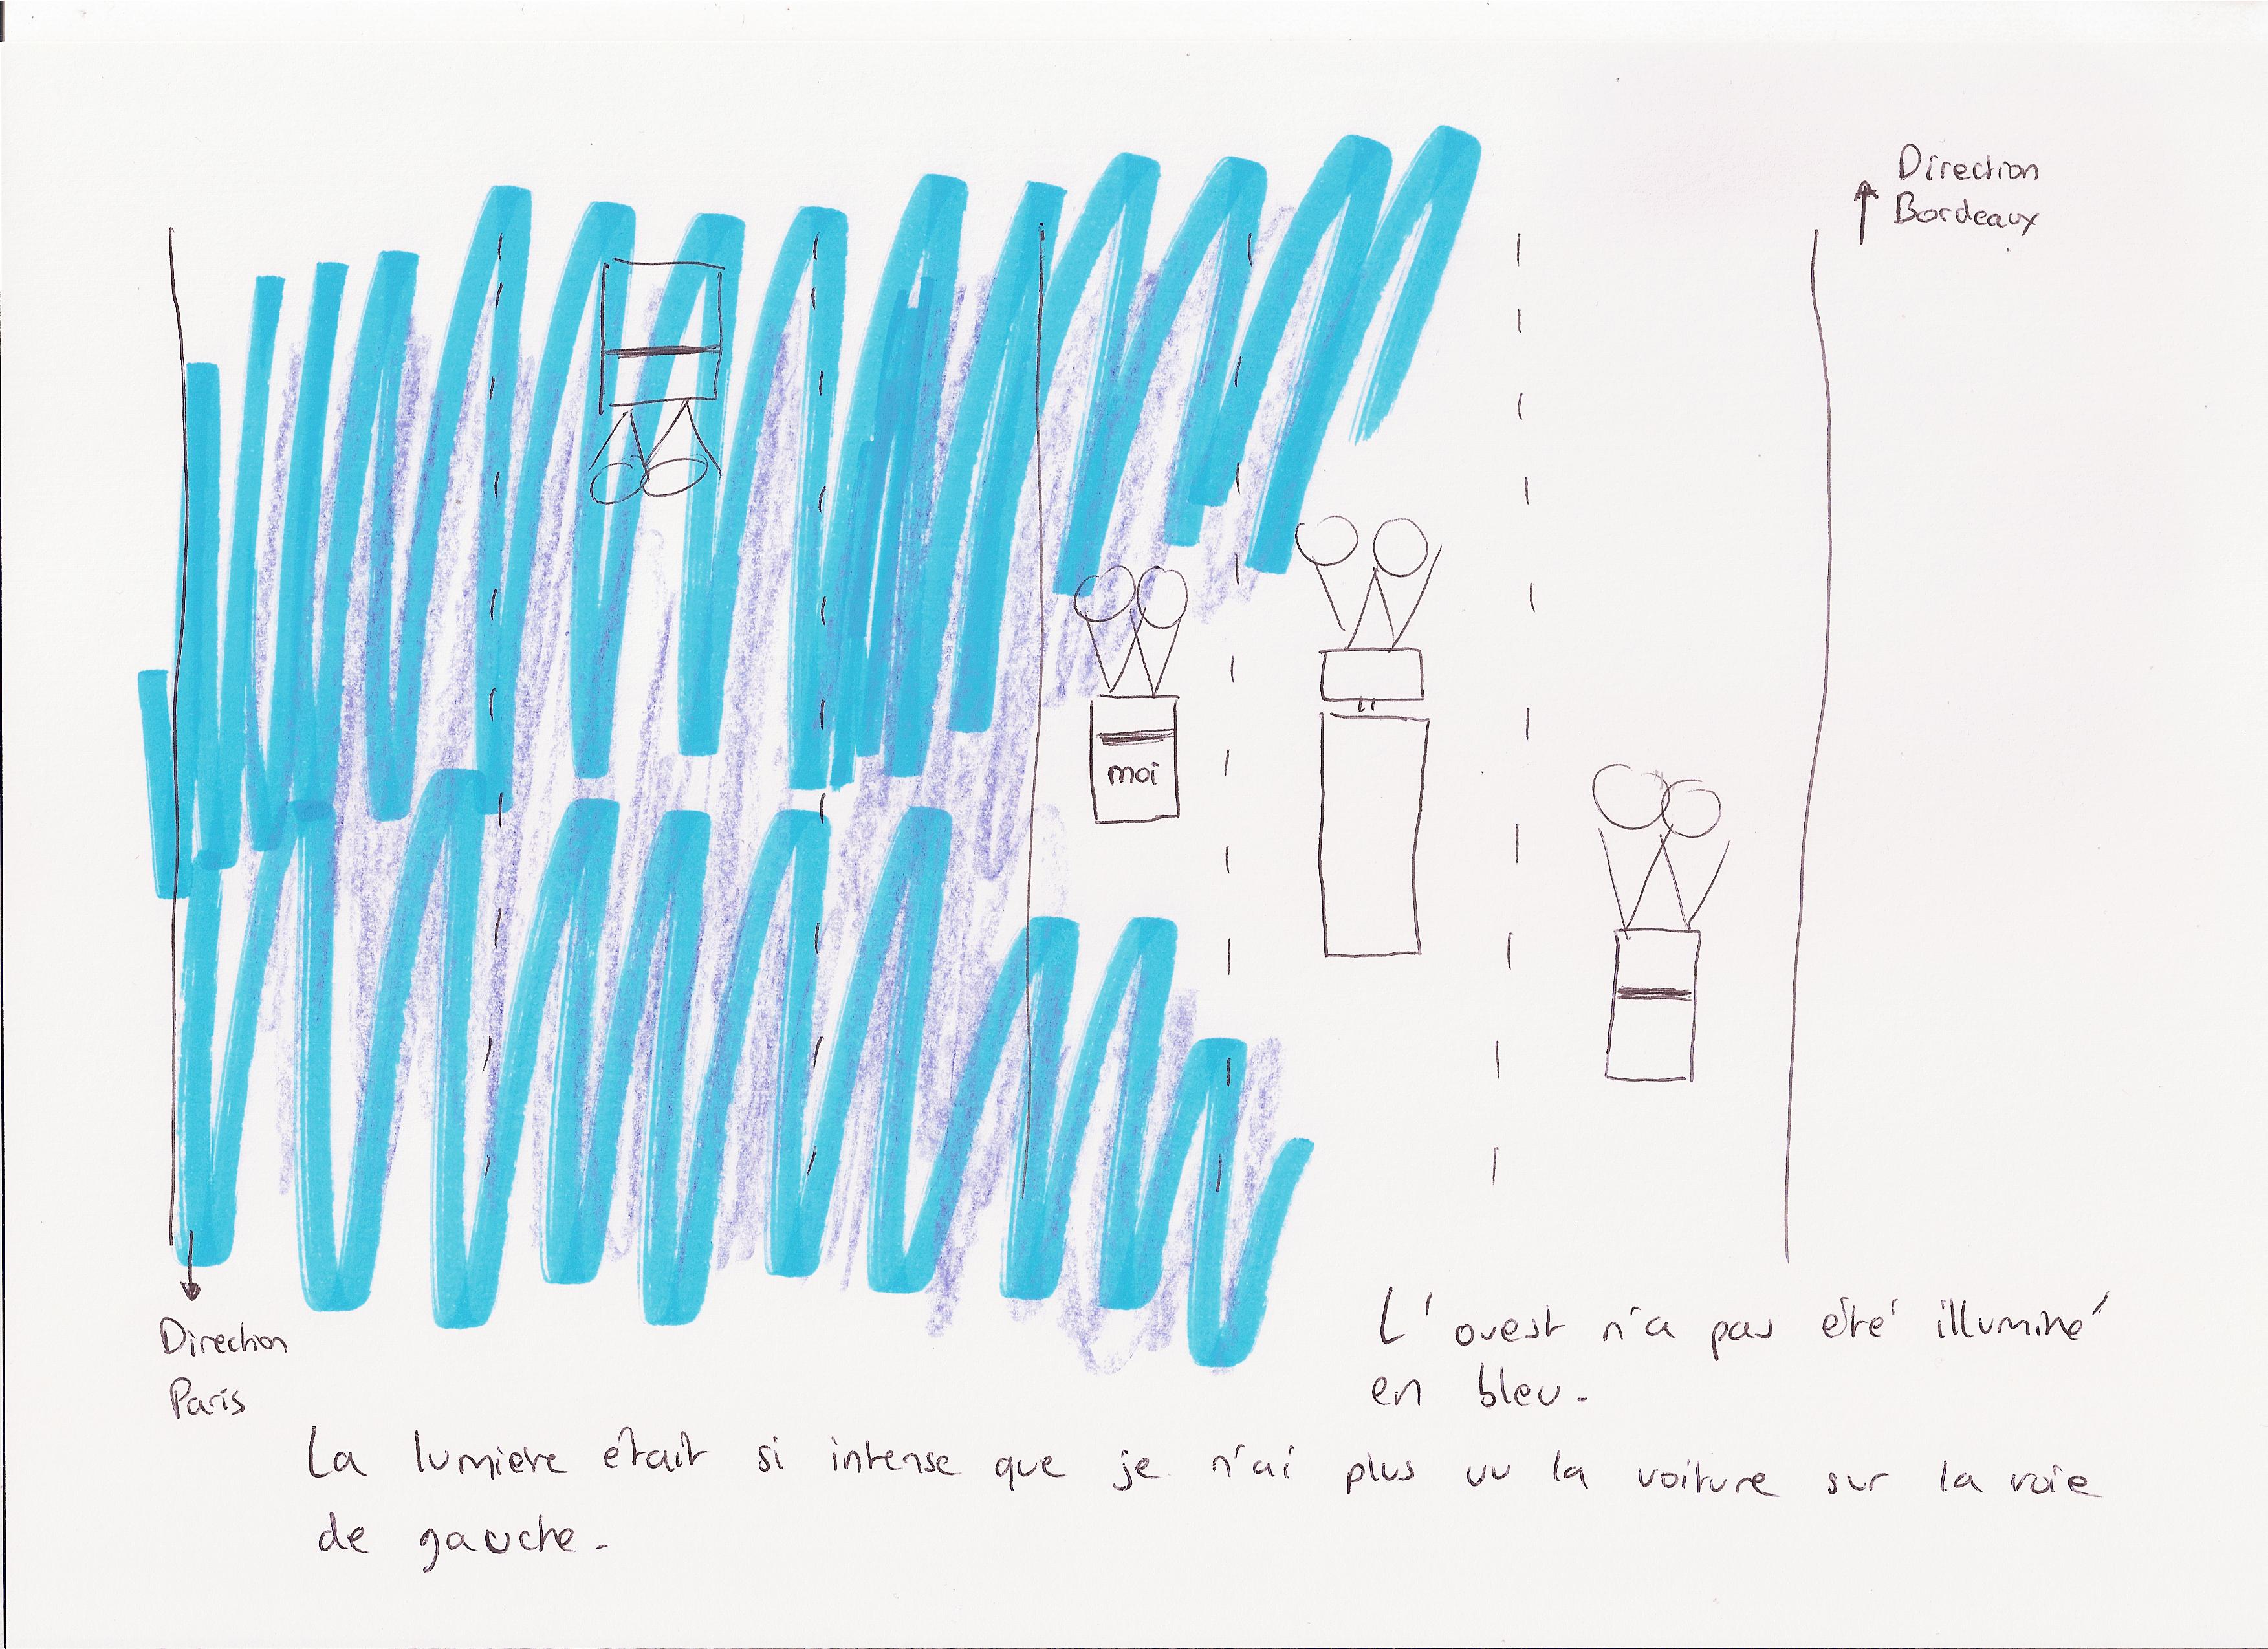 Direction
Bordeaux
moi
Direction
Paris
L'ouest n'a pas été illuminé
en bleu.
La lumière était si intense que je n'ai plus vu la voiture sur la voie
de gauche.